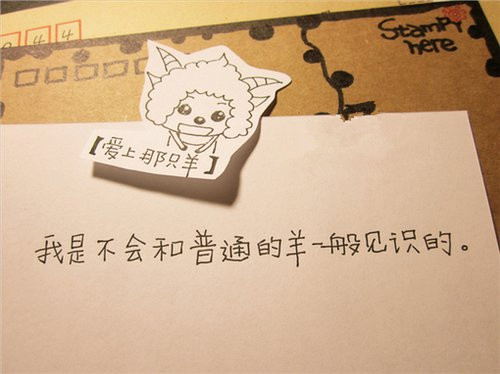 44
Stamp
here
【爱上那只羊】
我是不会和普通的羊一般见识的。